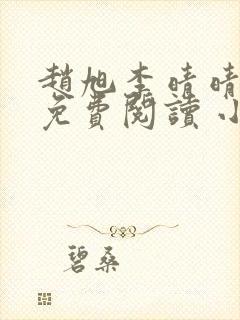 趙旭李晴晴
免費閱讀小
碧桑